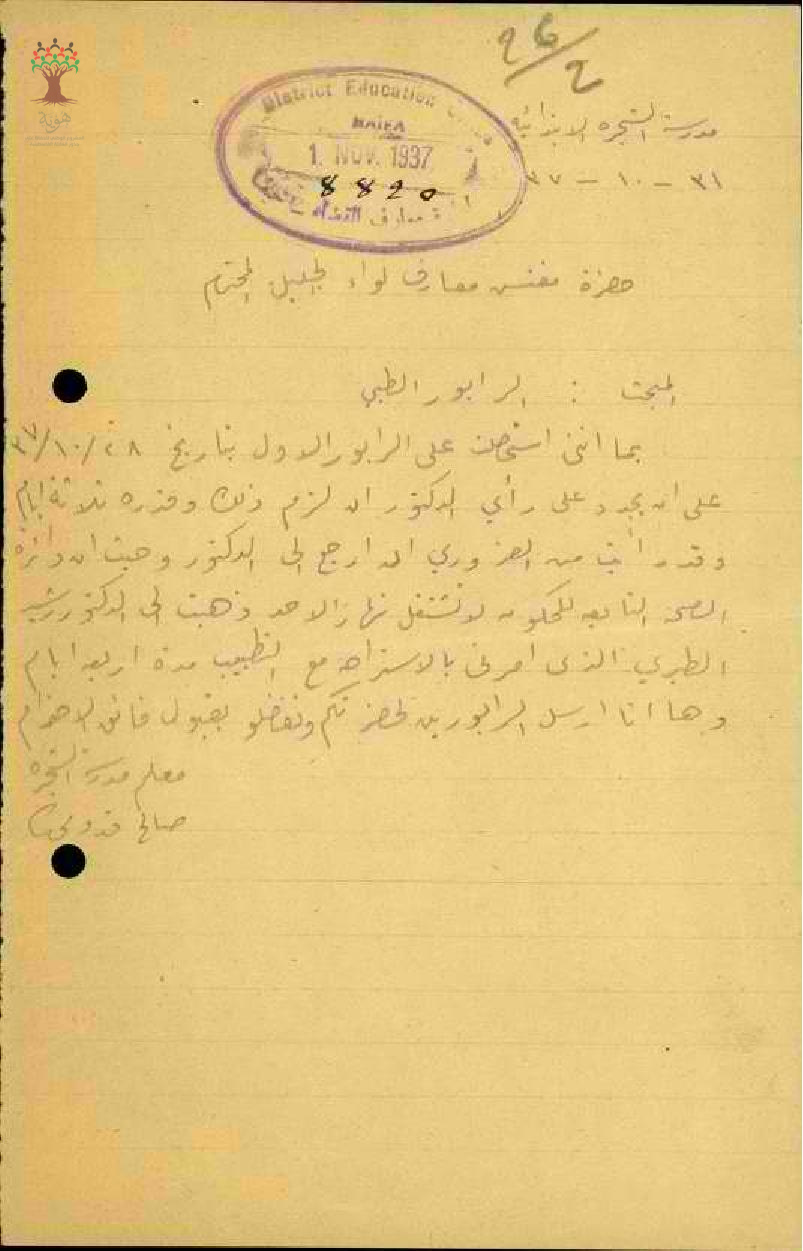 ٩٦/٩
District Education Office
HAIFA
1. NOV. 1937
8820
معارف القضاء
هوية
مدرسة الشجره الابتدائيه
٣١ - ١٠ - ٣٧
حضرة مفتش معارف لواء الجليل المحترم
المبحث : الرابور الطبي
بما انني استحصلت على الرابور الاول بتاريخ ٢٨/١٠/٣٧
على ان يجدد على رأي الدكتور ان لزم ذلك وقدره ثلاثة ايام
وقد رأيت من الضروري ان ارجع الى الدكتور وحيث ان دائرة
الصحة التابعه للحكومه لا تشتغل نهار الاحد ذهبت الى الدكتور رشيد
الطبري الذي امرني بالاستراحه مع التطبيب مدة اربعة ايام
وها انا ارسل الرابورين لحضرتكم وتفضلو بقبول فائق الاحترام
معلم مدرسة الشجره
صالح